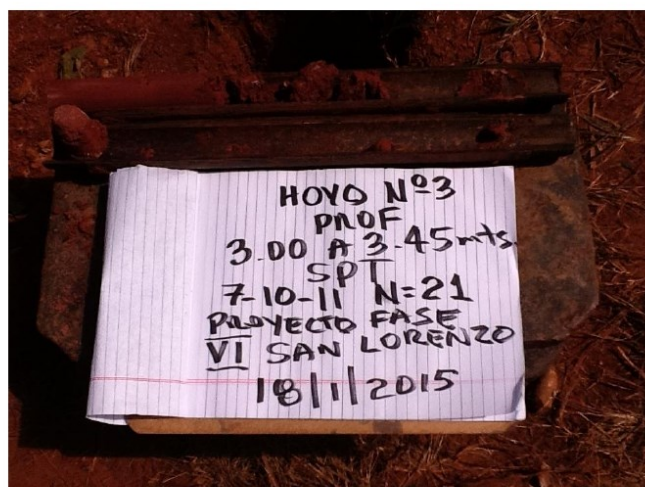 HOYO Nº3
PROF
3.00 A 3.45 mts.
SPT
7-10-11 N=21
PROYECTO FASE
VI SAN LORENZO
18/1/2015